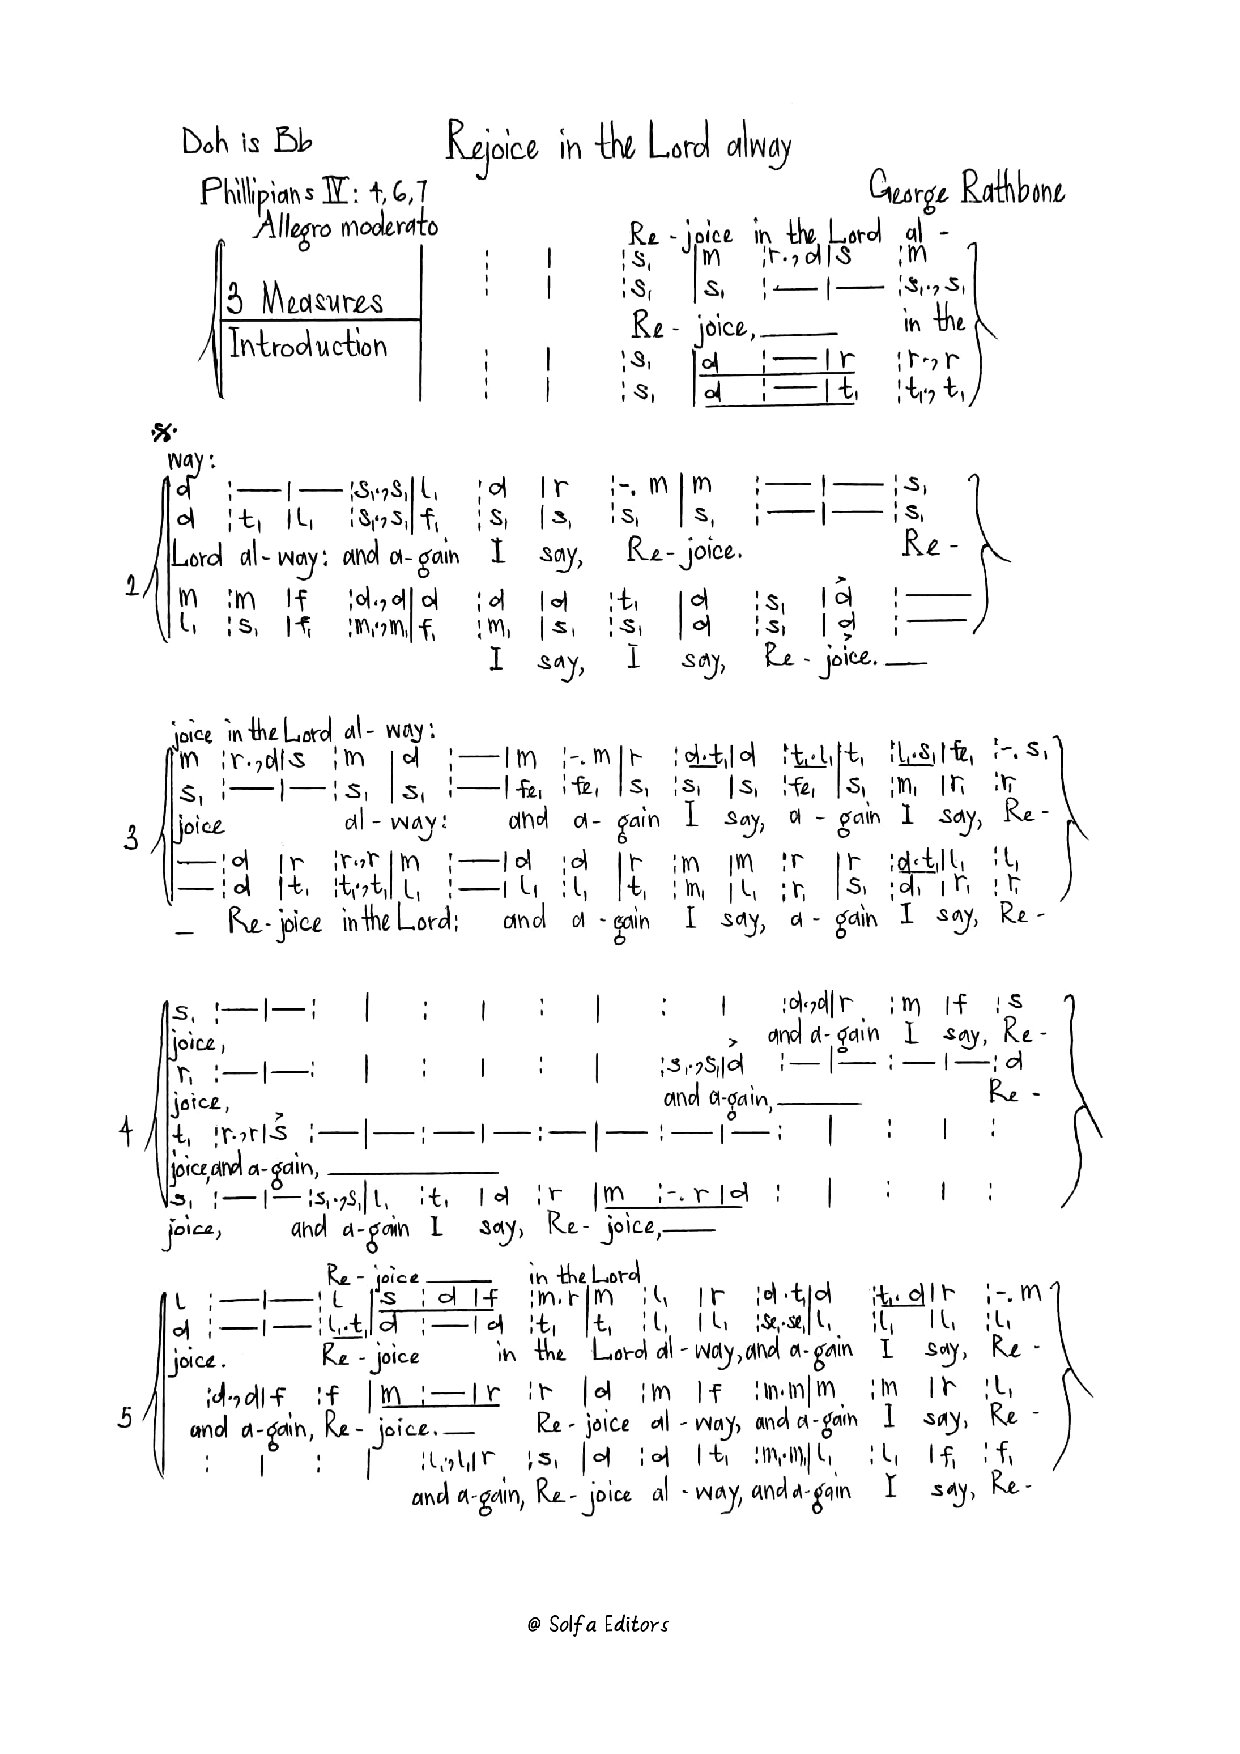 Doh is Bb
Rejoice in the Lord alway
Phillipians IV: 4,6,7
George Rathbone
Allegro moderato
Re - joice in the Lord al -
:s, |m :r.,d|s :m
3 Measures
:s, |s, :—|— :s,.,s,
Re - joice,____ in the
Introduction
:s, |d :—|r :r.,r
:s, |d :—|t, :t,.,t,
way:
d :—|— :s,.,s,|l, :d |r :-. m|m :—|— :s,
d :t, |l, :s,.,s,|f, :s, |s, :s, |s, :—|— :s,
Lord al-way: and a-gain I say, Re-joice. Re -
2
m :m |f :d.,d|d :d |d :t, |d :s, |d :—
l, :s, |f, :m,.,m,|f, :m, |s, :s, |d :s, |d :—
I say, I say, Re - joice.__
joice in the Lord al - way:
m :r.,d|s :m |d :—|m :-. m|r :d.t,|d :t,.l,|t, :l,.s,|fe, :-. s,
s, :—|— :s, |s, :—|fe, :fe, |s, :s, |s, :fe, |s, :m, |r, :r,
joice al - way: and a - gain I say, a - gain I say, Re -
3
— :d |r :r.,r|m :—|d :d |r :m |m :r |r :d.t,|l, :l,
— :d |t, :t,.,t,|l, :—|l, :l, |t, :m, |l, :r, |s, :d, |r, :r,
_ Re-joice in the Lord; and a - gain I say, a - gain I say, Re -
s, :—|—: | : | : | : | :d.,d|r :m |f :s
joice, and a-gain I say, Re -
r, :—|—: | : | : | :s,.,s,|d :—|— :—|—:d
joice, and a-gain,____ Re -
4
t, :r.,r|s :—|—:—|—:—|—:—|—: | : | :
joice,and a-gain, ____
s, :—|—:s,.,s,|l, :t, |d :r |m :-. r|d : | : | :
joice, and a-gain I say, Re - joice,___
Re - joice ____ in the Lord
l :—|—:l |s :d |f :m.r|m :l, |r :d.t,|d :t,.d|r :-. m
d :—|—:l,.t,|d :—|d :t, |t, :l, |l, :se,.se,|l, :l, |l, :l,
joice. Re - joice in the Lord al - way,and a-gain I say, Re -
5
:d.,d|f :f |m :—|r :r |d :m |f :m.m|m :m |r :l,
and a-gain, Re - joice.__ Re - joice al - way, and a-gain I say, Re -
: | : | :l,.,l,|r :s, |d :d |t, :m,.m,|l, :l, |f, :f,
and a-gain, Re - joice al - way, and a-gain I say, Re -
@ Solfa Editors